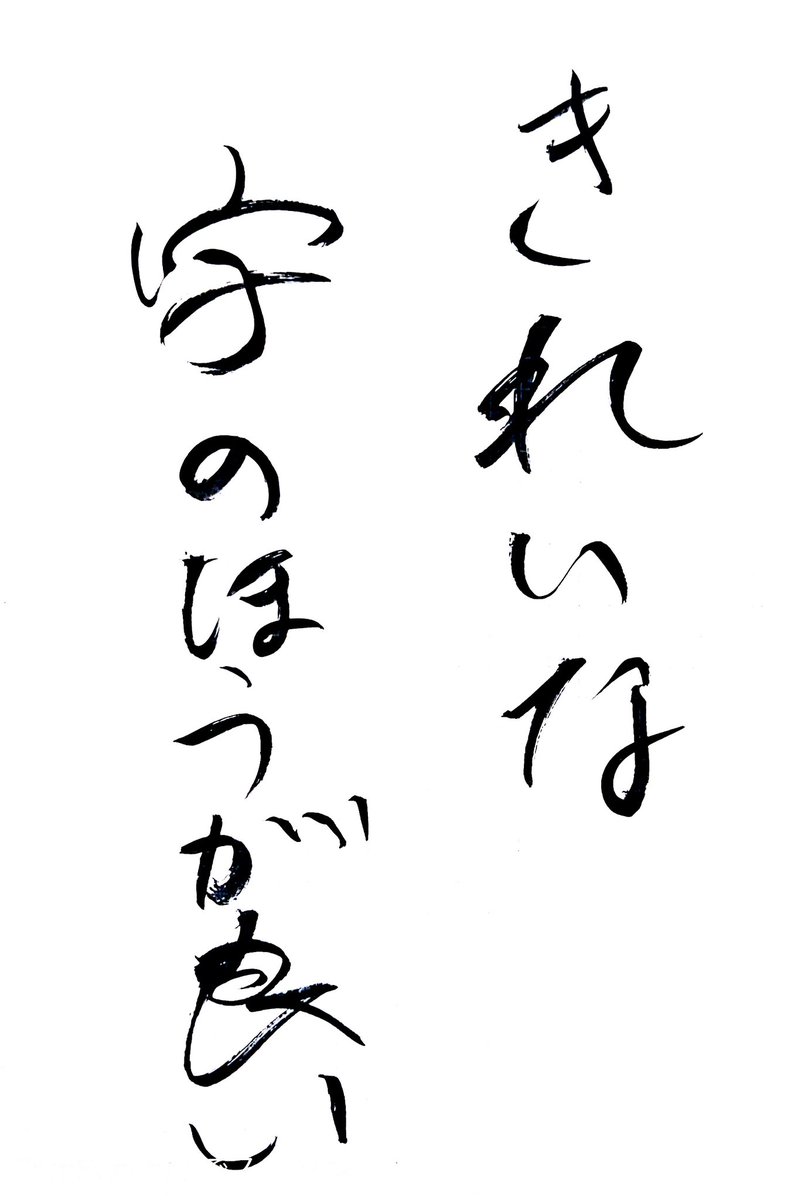 きれいな
字のほうが良い